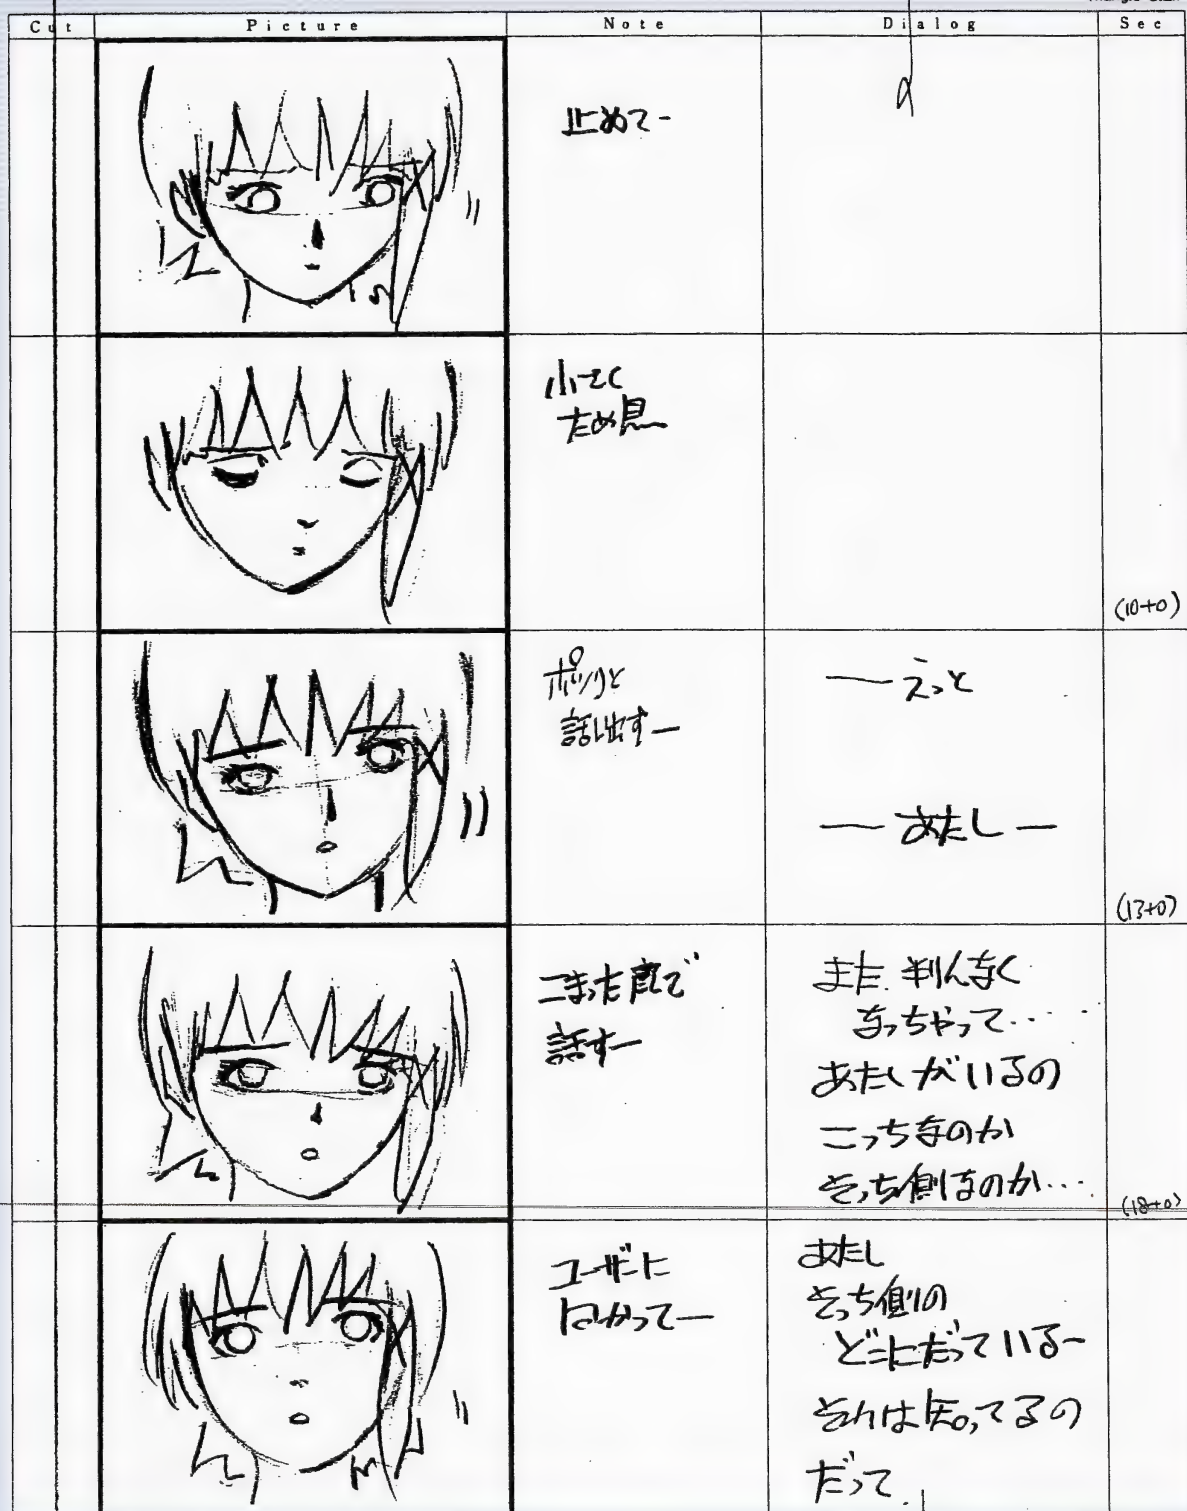 Cut Picture Note Dialog Sec
止めて-
小さく
ため息
(10+0)
ポツリと
話し出すー
── えっと
── あたし ─
(13+0)
こまった風で
話すー
また 判んなく
なっちゃって‥‥
あたしがいるの
こっちなのか
そっち側なのか…
(18+0)
ユーザーに
向かってー
あたし
そっち側の
どこにだっている～
それは知ってるの
だって